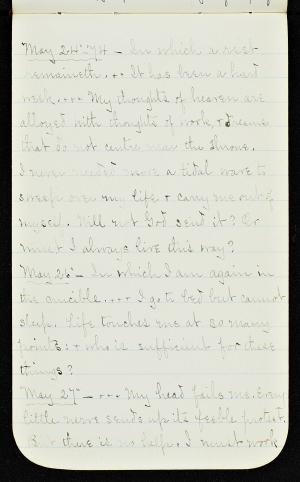 May 24" '74 - In which a rest
remaineth... It has been a hard
week.... My thoughts of heaven are
alloyed with thoughts of work, & dreams
that do not centre near the throne.
I never needed more a tidal wave to
sweep over my life & carry me out of
myself. Will not God send it? Or
must I always live this way?
May 26" - In which I am again in
the crucible.... I go to bed but cannot
sleep. Life touches me at so many
points: & who is sufficient for these
things?
May 27" - ... My head fails me. Every
little nerve sends up its feeble protest.
But there is no help. I must work